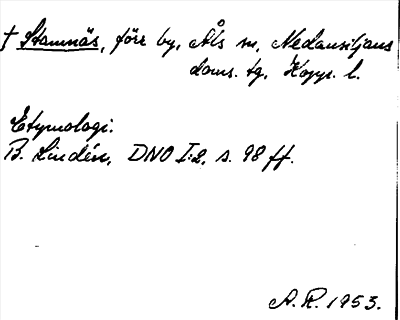 † Stamnäs, förr by, Åls sn, Nedansiljans
doms. tg, Kopp. l.
Etymologi:
B. Lindén, DNO I:2, s. 98 ff.
A. R. 1953.